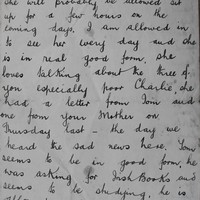 she will probably be allowed sit
up for a few hours on the
coming days. I am allowed in
to see her every day and she
is in real good form, she
loves talking about the three of
you especially poor Charlie, she
had a letter from Tom and
one from your Mother on
Thursday last - the day we
heard the sad news here. Tom
seems to be in good form, he
was asking for Irish Books and
seems to be studying, he is